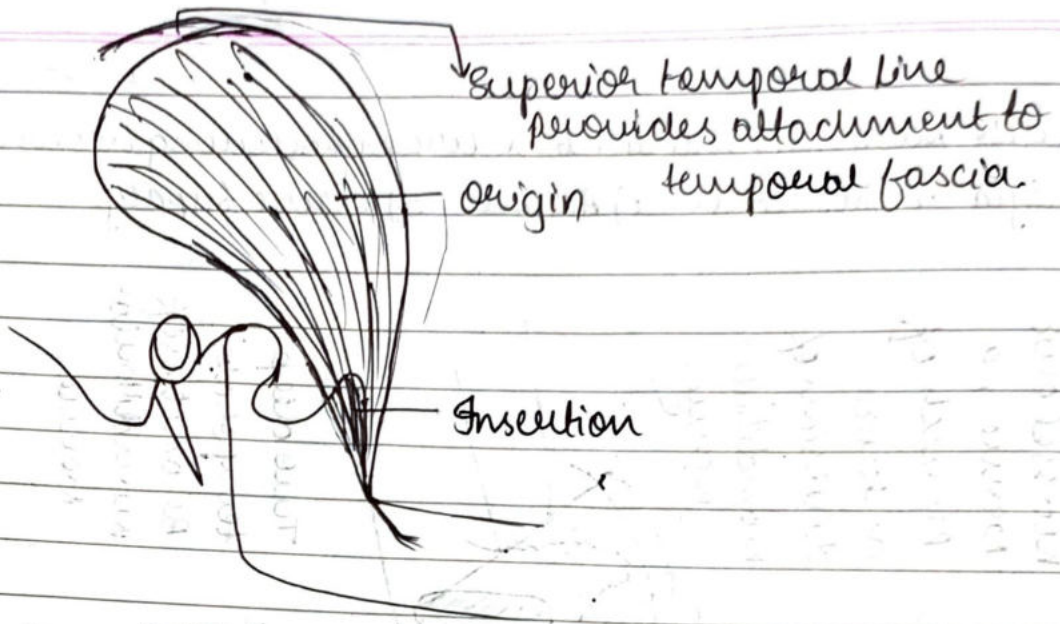 Superior temporal line
provides attachment to
temporal fascia.
Origin
Insertion